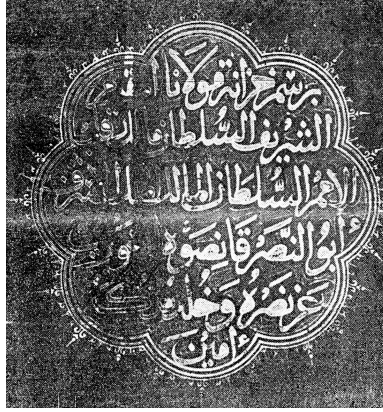 برسم خزانة مولانا المقام
الشريف السلطان
الأعظم السلطان المالك الملك الأشرف
أبو النصر قانصوه الغوري
عز نصره وخلد ملكه
آمين